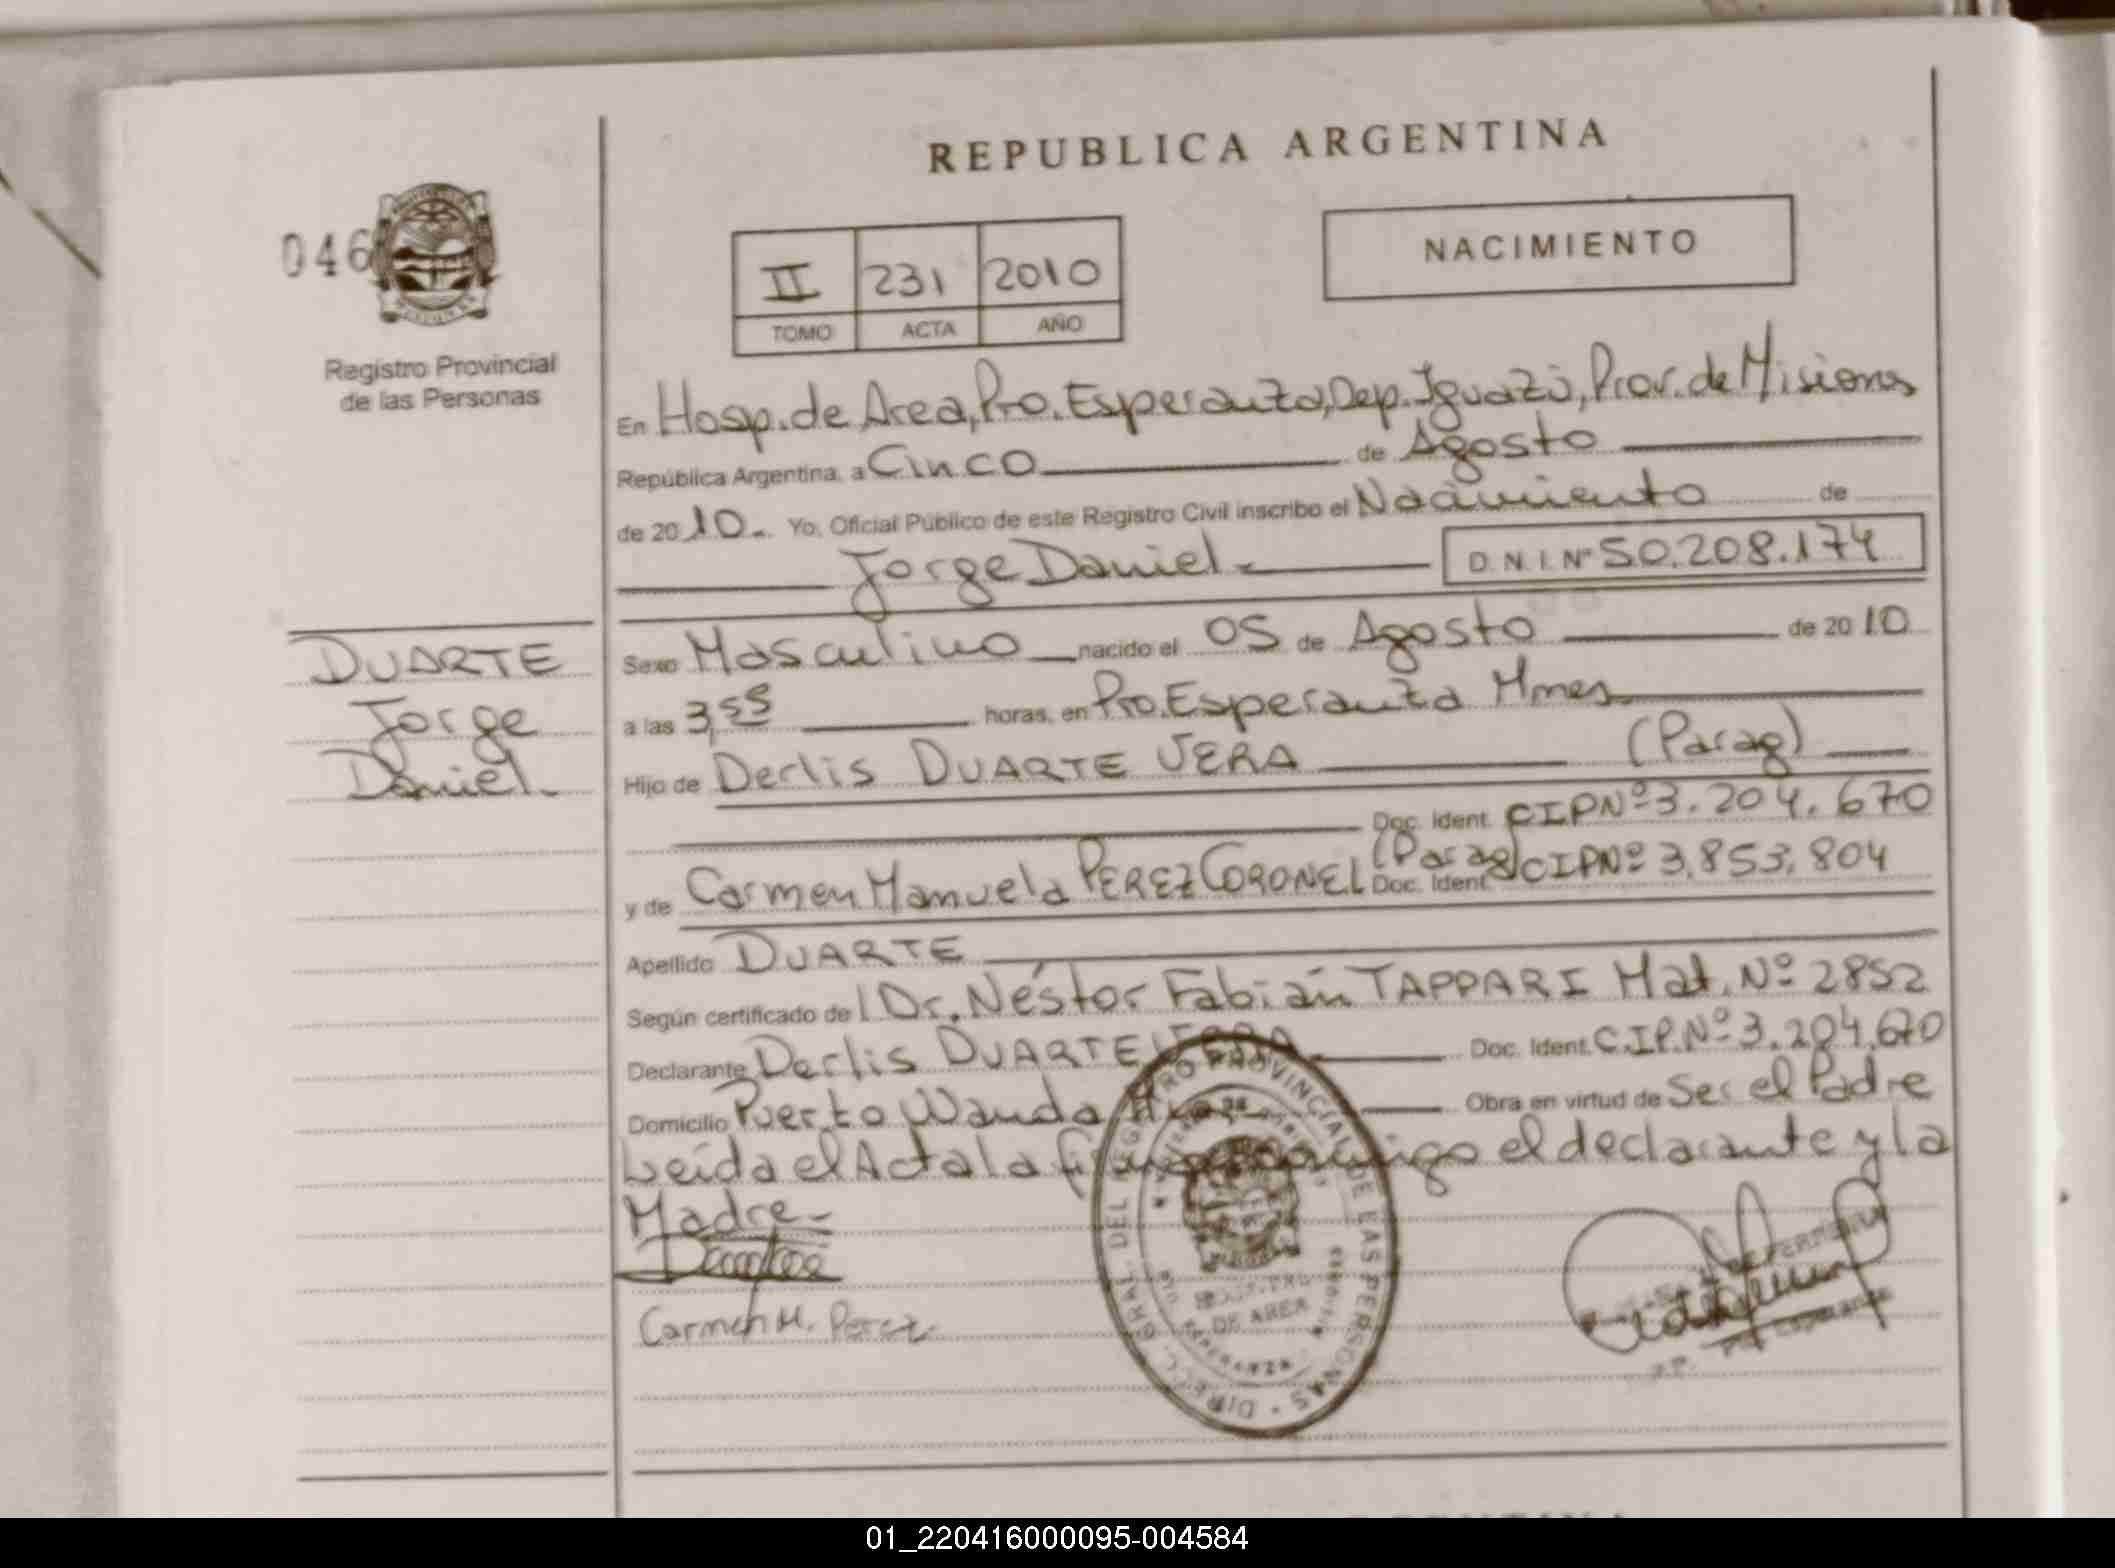 REPUBLICA ARGENTINA
046
II 231 2010
TOMO ACTA AÑO
NACIMIENTO
Registro Provincial
de las Personas
En Hosp. de Area, Pto. Esperanza, Dep. Iguazú, Prov. de Misiones
República Argentina, a Cinco de Agosto
de 2010. Yo, Oficial Público de este Registro Civil inscribo el Nacimiento de
Jorge Daniel D.N.I. Nº 50.208.174
DUARTE
Jorge
Daniel
Sexo Masculino nacido el 05 de Agosto de 2010
a las 3,55 horas, en Pto. Esperanza Mnes
Hijo de Derlis DUARTE VERA (Parag)
Doc. Ident. CIPNº 3.204.670
y de Carmen Manuela PEREZ CORONEL (Parag) Doc. Ident. CIPNº 3.853.804
Apellido DUARTE
Según certificado del Dr. Néstor Fabián TAPPARI Mat. Nº 2852
Declarante Derlis DUARTE VERA Doc. Ident. C.I.P.Nº 3.204.670
Domicilio Puerto Wanda Obra en virtud de Ser el Padre
Leída el Acta la firman conmigo el declarante y la
Madre
Carmen M. Perez
DIRECC. GRAL. DEL REGISTRO PROVINCIAL DE LAS PERSONAS
DE AREA
01_220416000095-004584